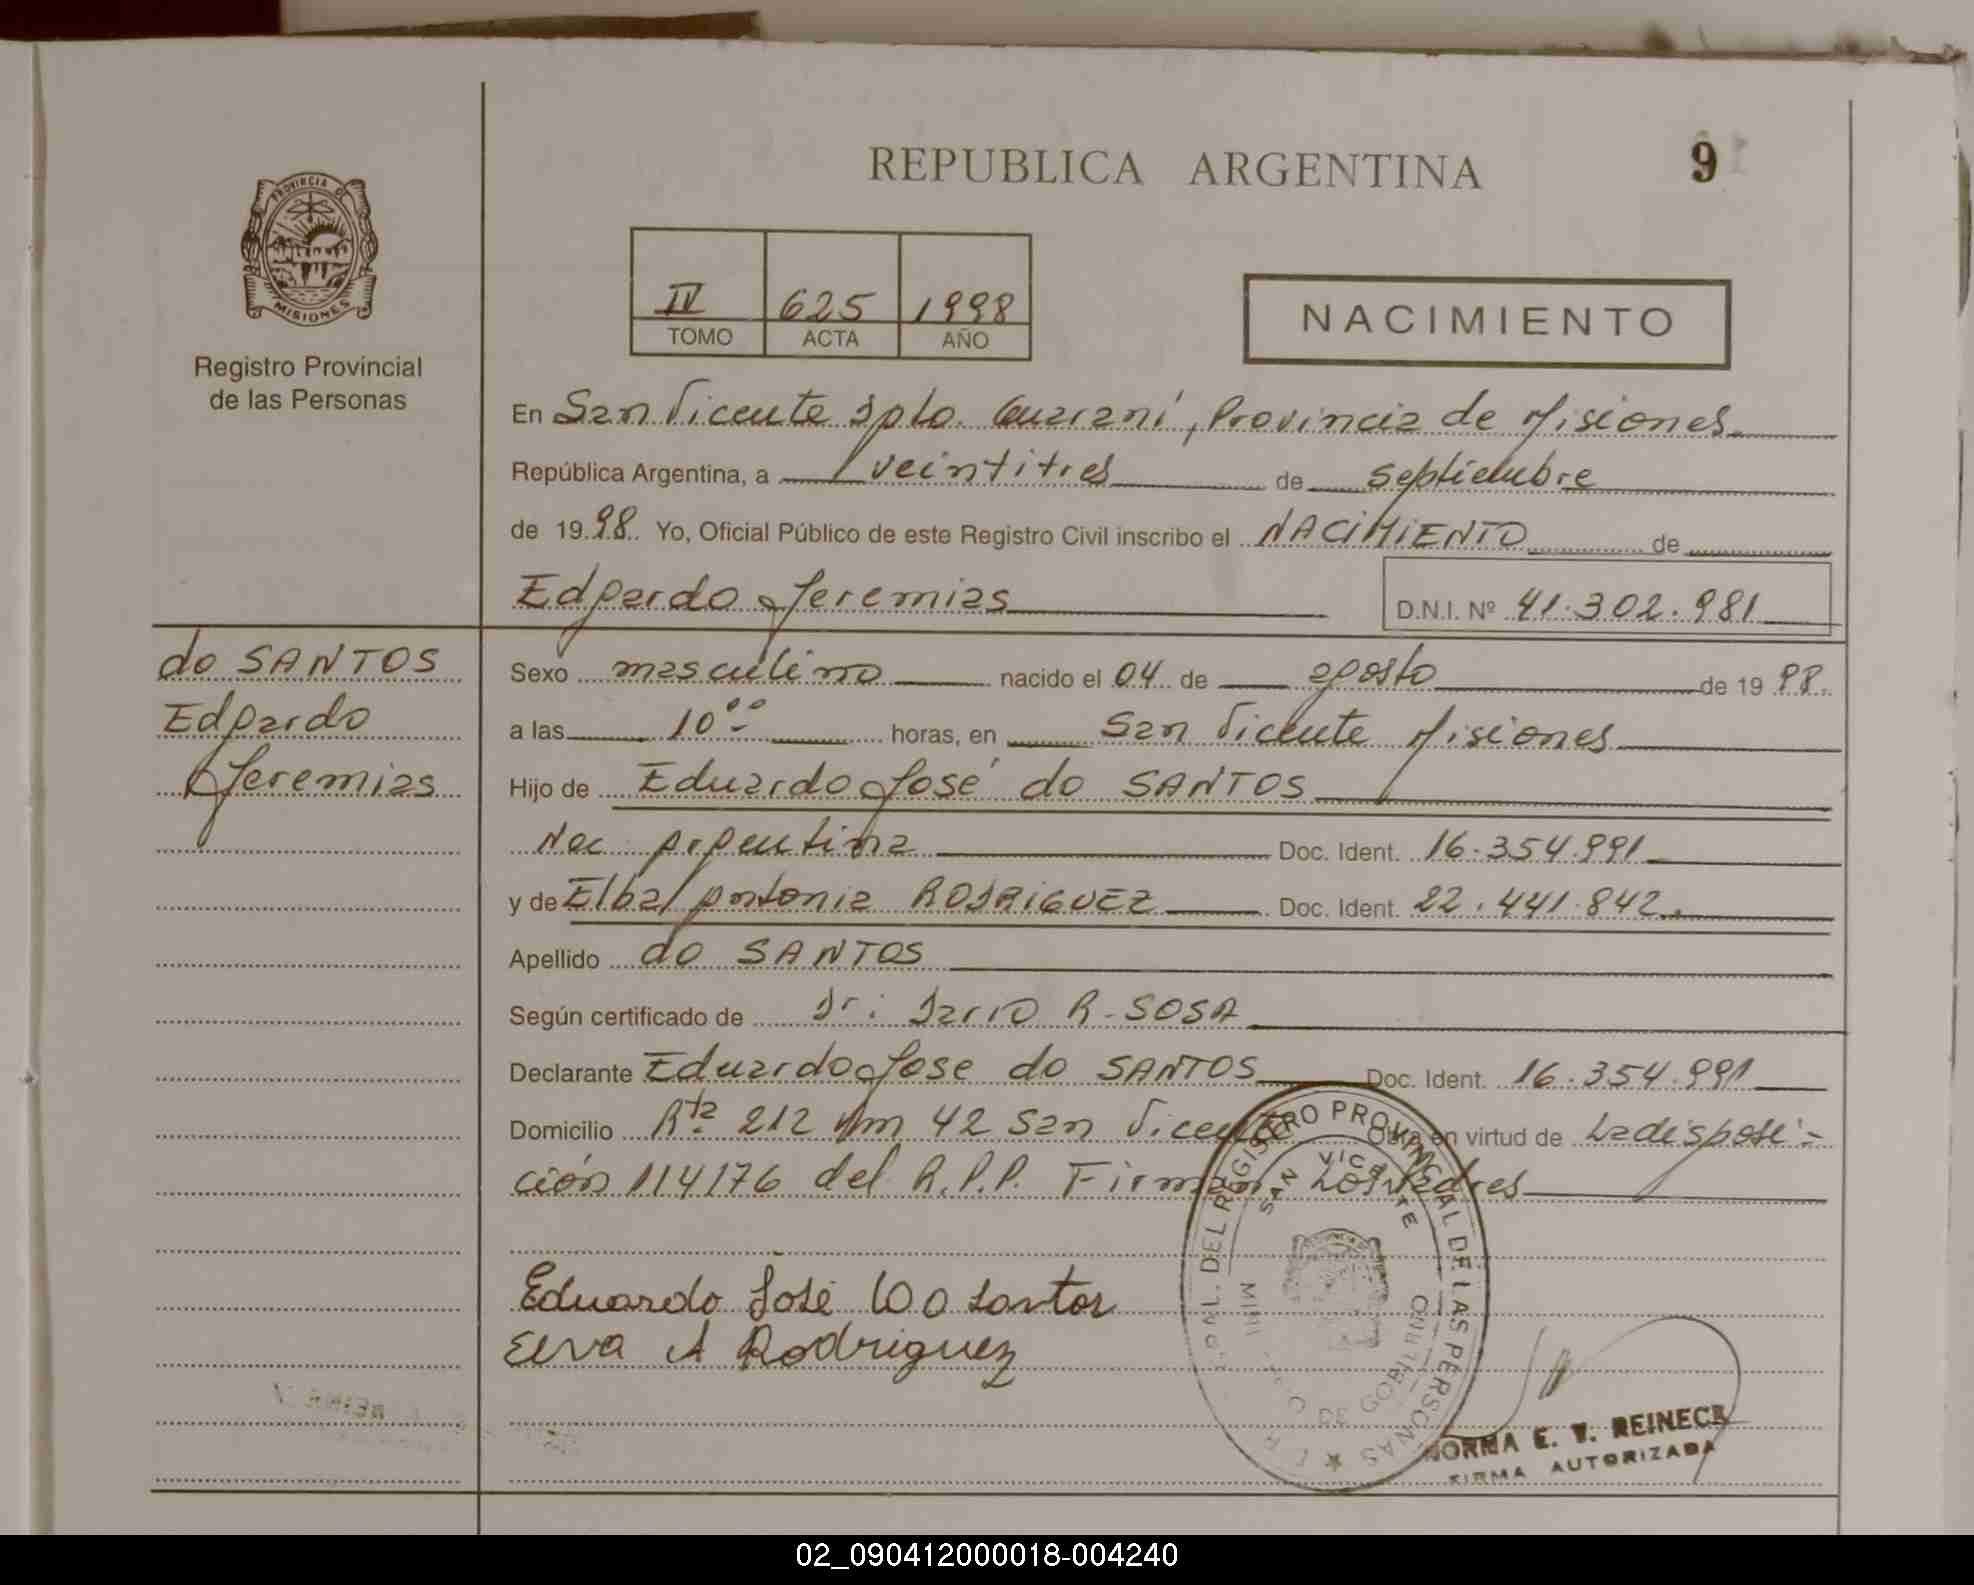 REPUBLICA ARGENTINA
9
PROVINCIA DE
MISIONES
Registro Provincial
de las Personas
IV 625 1998
TOMO ACTA AÑO
NACIMIENTO
En San Vicente Dpto. Guaraní, Provincia de Misiones
República Argentina, a veintitres de septiembre
de 1998. Yo, Oficial Público de este Registro Civil inscribo el NACIMIENTO de
Edgardo Jeremias
D.N.I. Nº 41.302.981
do SANTOS
Edgardo
Jeremias
Sexo masculino nacido el 04 de agosto de 1998.
a las 10°° horas, en San Vicente Misiones
Hijo de Eduardo José do SANTOS
Nac. Argentina Doc. Ident. 16.354.991
y de Elba Antonia RODRIGUEZ Doc. Ident. 22.441.842.
Apellido do SANTOS
Según certificado de Dr: Dario R. SOSA
Declarante Eduardo Jose do SANTOS Doc. Ident. 16.354.991
Domicilio Rta 212 Km 42 San Vicente Obra en virtud de La disposi-
ción 114176 del R.P.P. Firman Los Padres
Eduardo José Do Santos
Elva A Rodriguez
DEL REGISTRO PROVINCIAL DE LAS PERSONAS
SAN VICENTE
DE GOBIERNO
NORMA E. V. REINECK
FIRMA AUTORIZADA
02_090412000018-004240